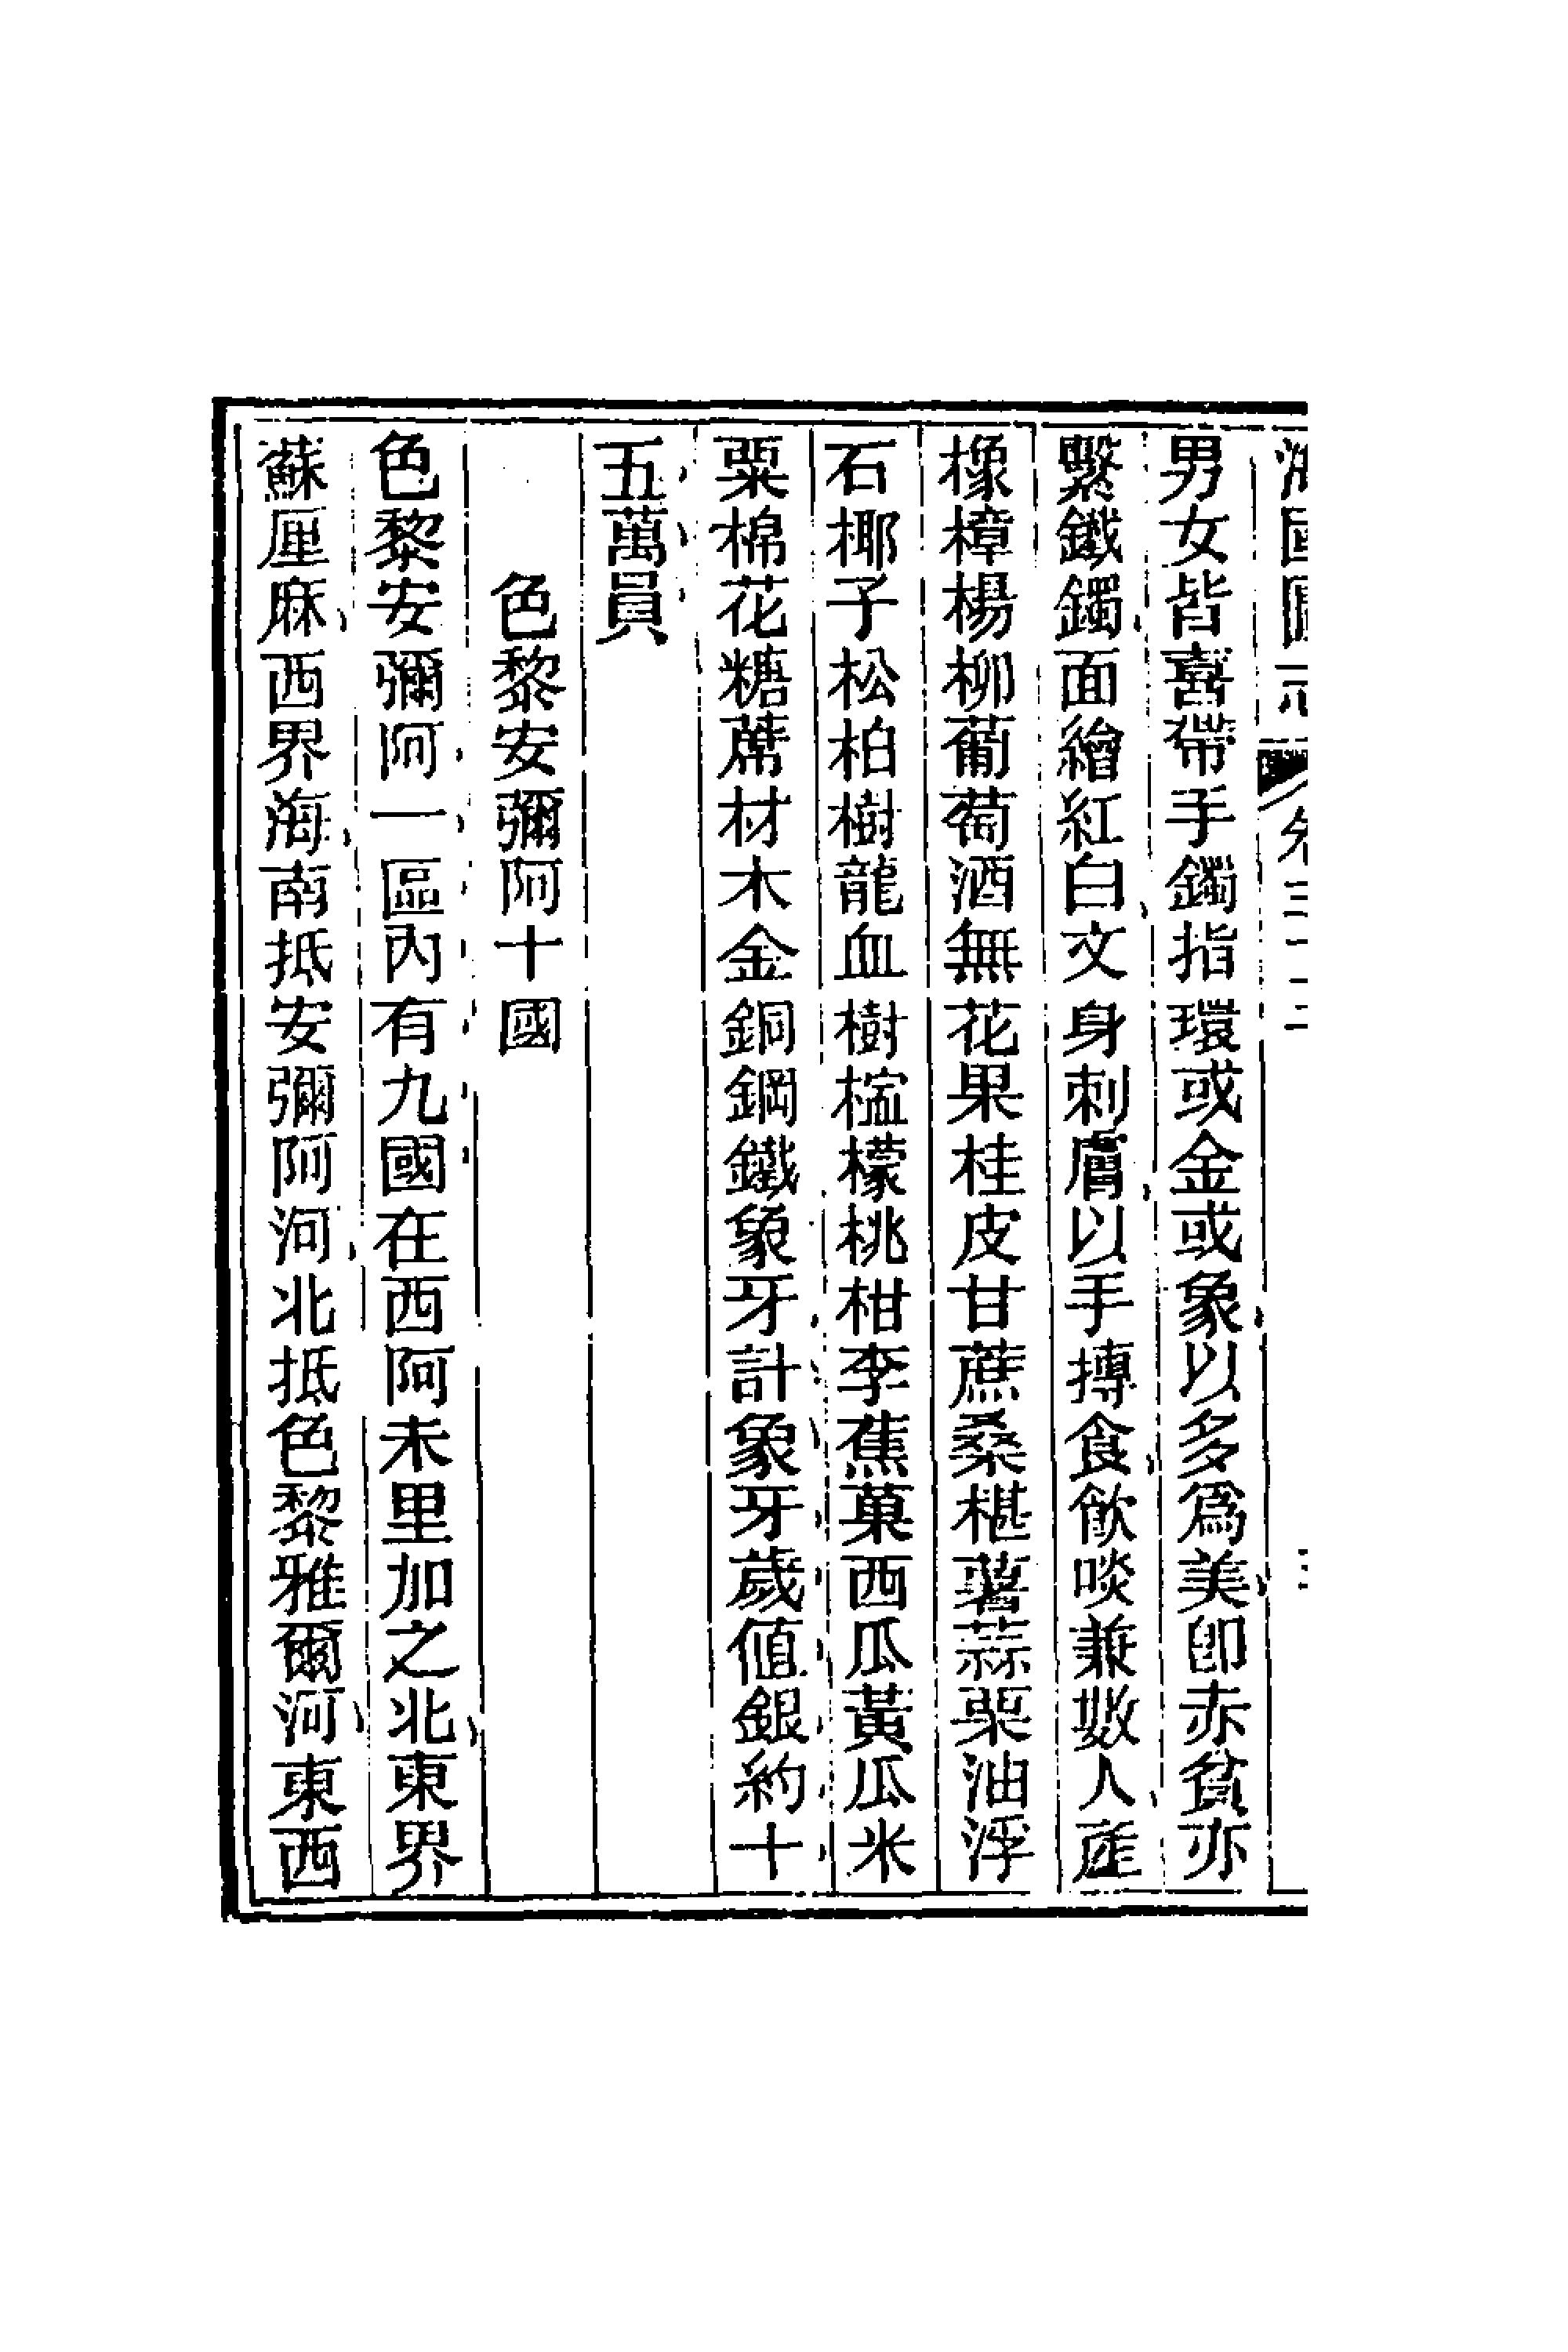 男女皆喜帶手鐲指環或金或象以多爲美卽赤貧亦
繫鐵鐲面繪紅白文身刺膚以手摶食飲啖兼數人產
橡樟楊柳葡萄酒無花果桂皮甘蔗桑椹薯蒜栗油浮
石椰子松柏樹龍血樹檬桃柑李蕉菓西瓜黃瓜米
粟棉花糖蓆材木金銅鋼鐵象牙計象牙歲値銀約十
五萬員
色黎安彌阿十國
色黎安彌阿一區內有九國在西阿未里加之北東界
蘇厘麻西界海南抵安彌阿河北抵色黎雅爾河東西